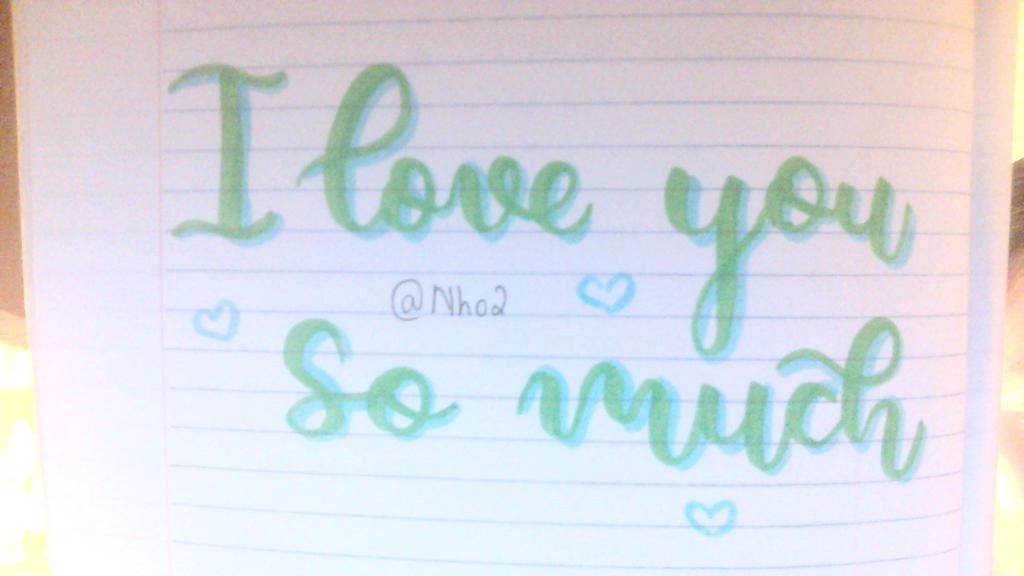 I love you
@Nho2
so much